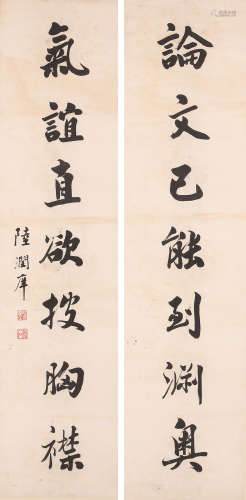 論文已能到淵奧
氣誼直欲披胸襟
陸潤庠